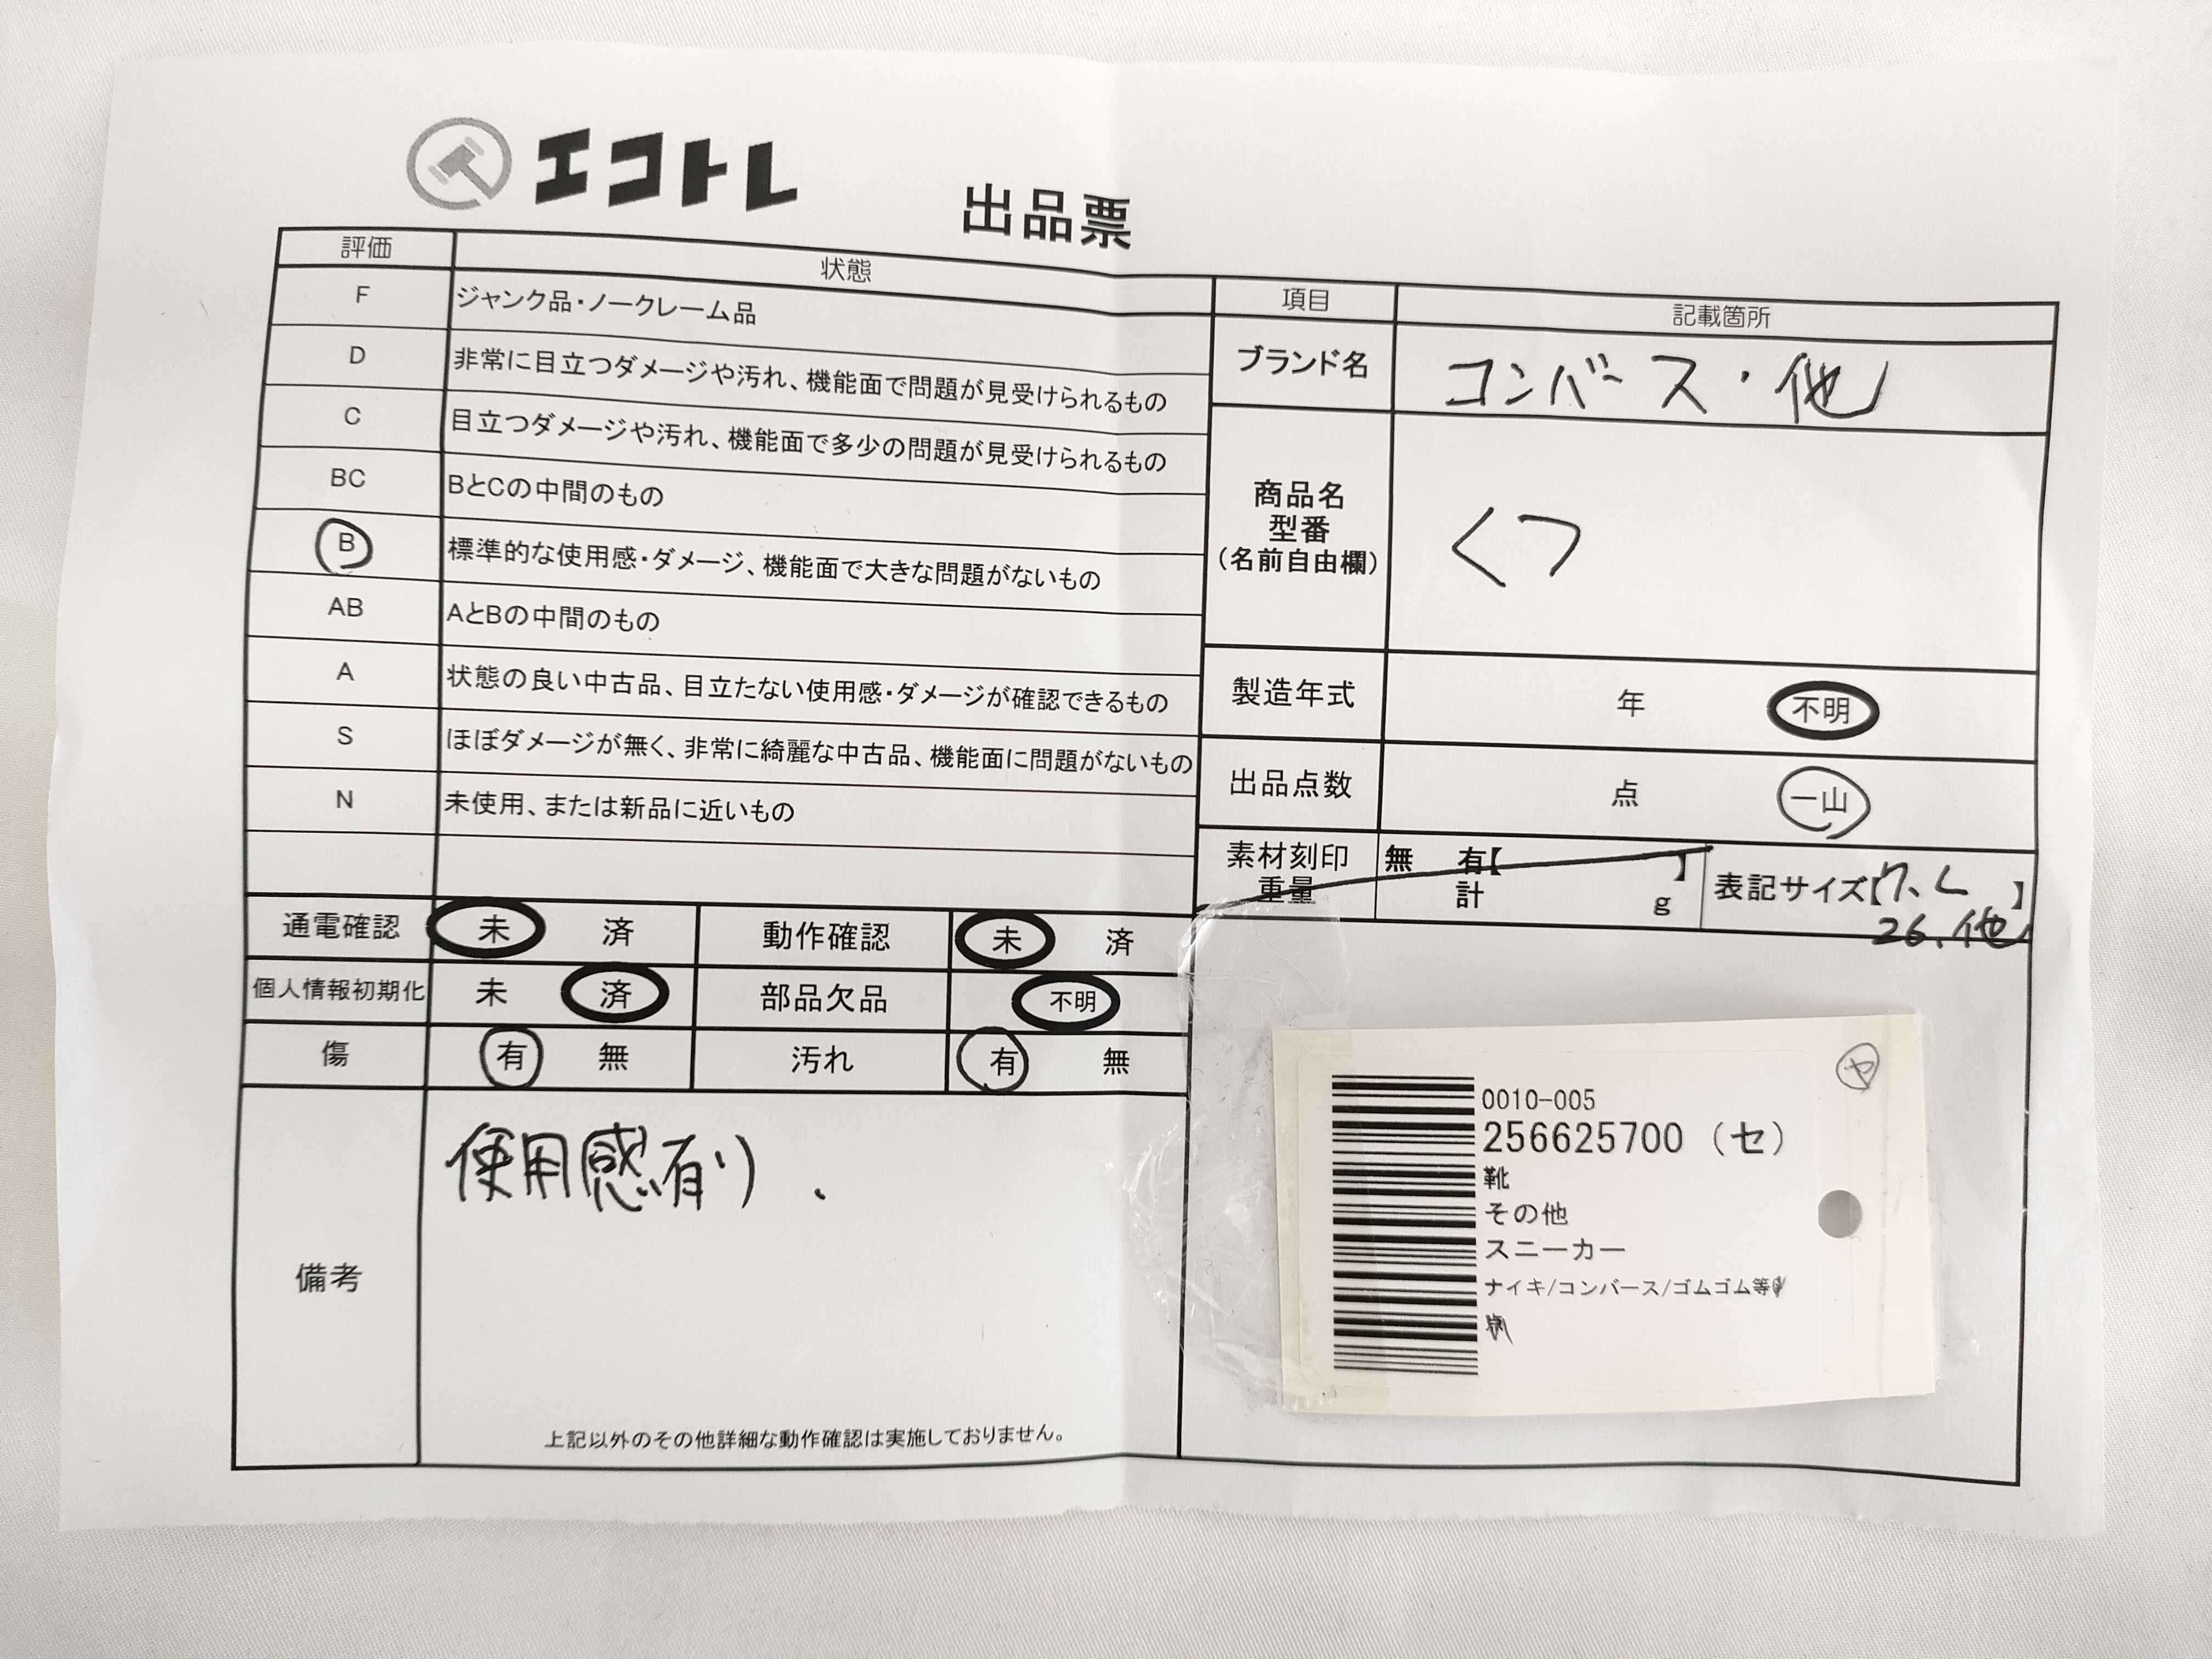 エコトレ
出品票
評価 状態
F ジャンク品・ノークレーム品
D 非常に目立つダメージや汚れ、機能面で問題が見受けられるもの
C 目立つダメージや汚れ、機能面で多少の問題が見受けられるもの
BC BとCの中間のもの
B 標準的な使用感・ダメージ、機能面で大きな問題がないもの
AB AとBの中間のもの
A 状態の良い中古品、目立たない使用感・ダメージが確認できるもの
S ほぼダメージが無く、非常に綺麗な中古品、機能面に問題がないもの
N 未使用、または新品に近いもの
通電確認 未 済 動作確認 未 済
個人情報初期化 未 済 部品欠品 不明
傷 有 無 汚れ 有 無
備考
使用感有り.
上記以外のその他詳細な動作確認は実施しておりません。
項目 記載箇所
ブランド名 コンバース・他
商品名
型番
(名前自由欄)
くつ
製造年式 年 不明
出品点数 点 一山
素材刻印 無 有【 】
重量 計 g
表記サイズ【7、L 】
26、他
ヤ
0010-005
256625700 (セ)
靴
その他
スニーカー
ナイキ/コンバース/ゴムゴム等